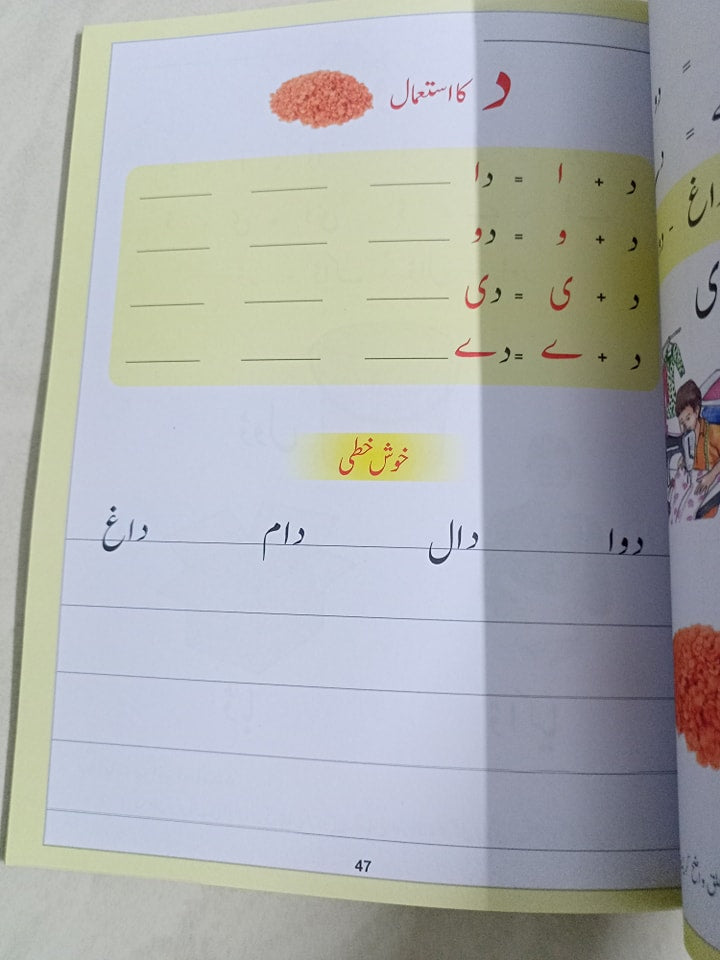 د کا استعمال
د + ا = دا
د + و = دو
د + ی = دی
د + ے = دے
خوش خطی
دوا دال دام داغ
47